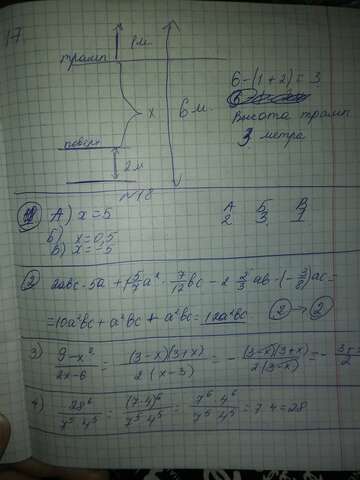 17
1 м.
трамп.
x
6 м.
поверх.
2 м
6-(1+2)=3
Высота трамп.
3 метра
N18
А) x=5
Б) x=0,5
В) x=-5
А Б В
2 3 1
② 2abc·5a + (5/4 a²·7/12 bc - 2 2/3 ab·(-3/8) ac =
=10a²bc + a²bc + a²bc = 12a²bc. ②→②
3) 9-x²/2x-6 = (3-x)(3+x)/2(x-3) = -(3-x)(3+x)/2(3-x) = -
4) 28⁶/7⁵·4⁵ = (7·4)⁶/7⁵·4⁵ = 7⁶·4⁶/7⁵·4⁵ = 7·4=28